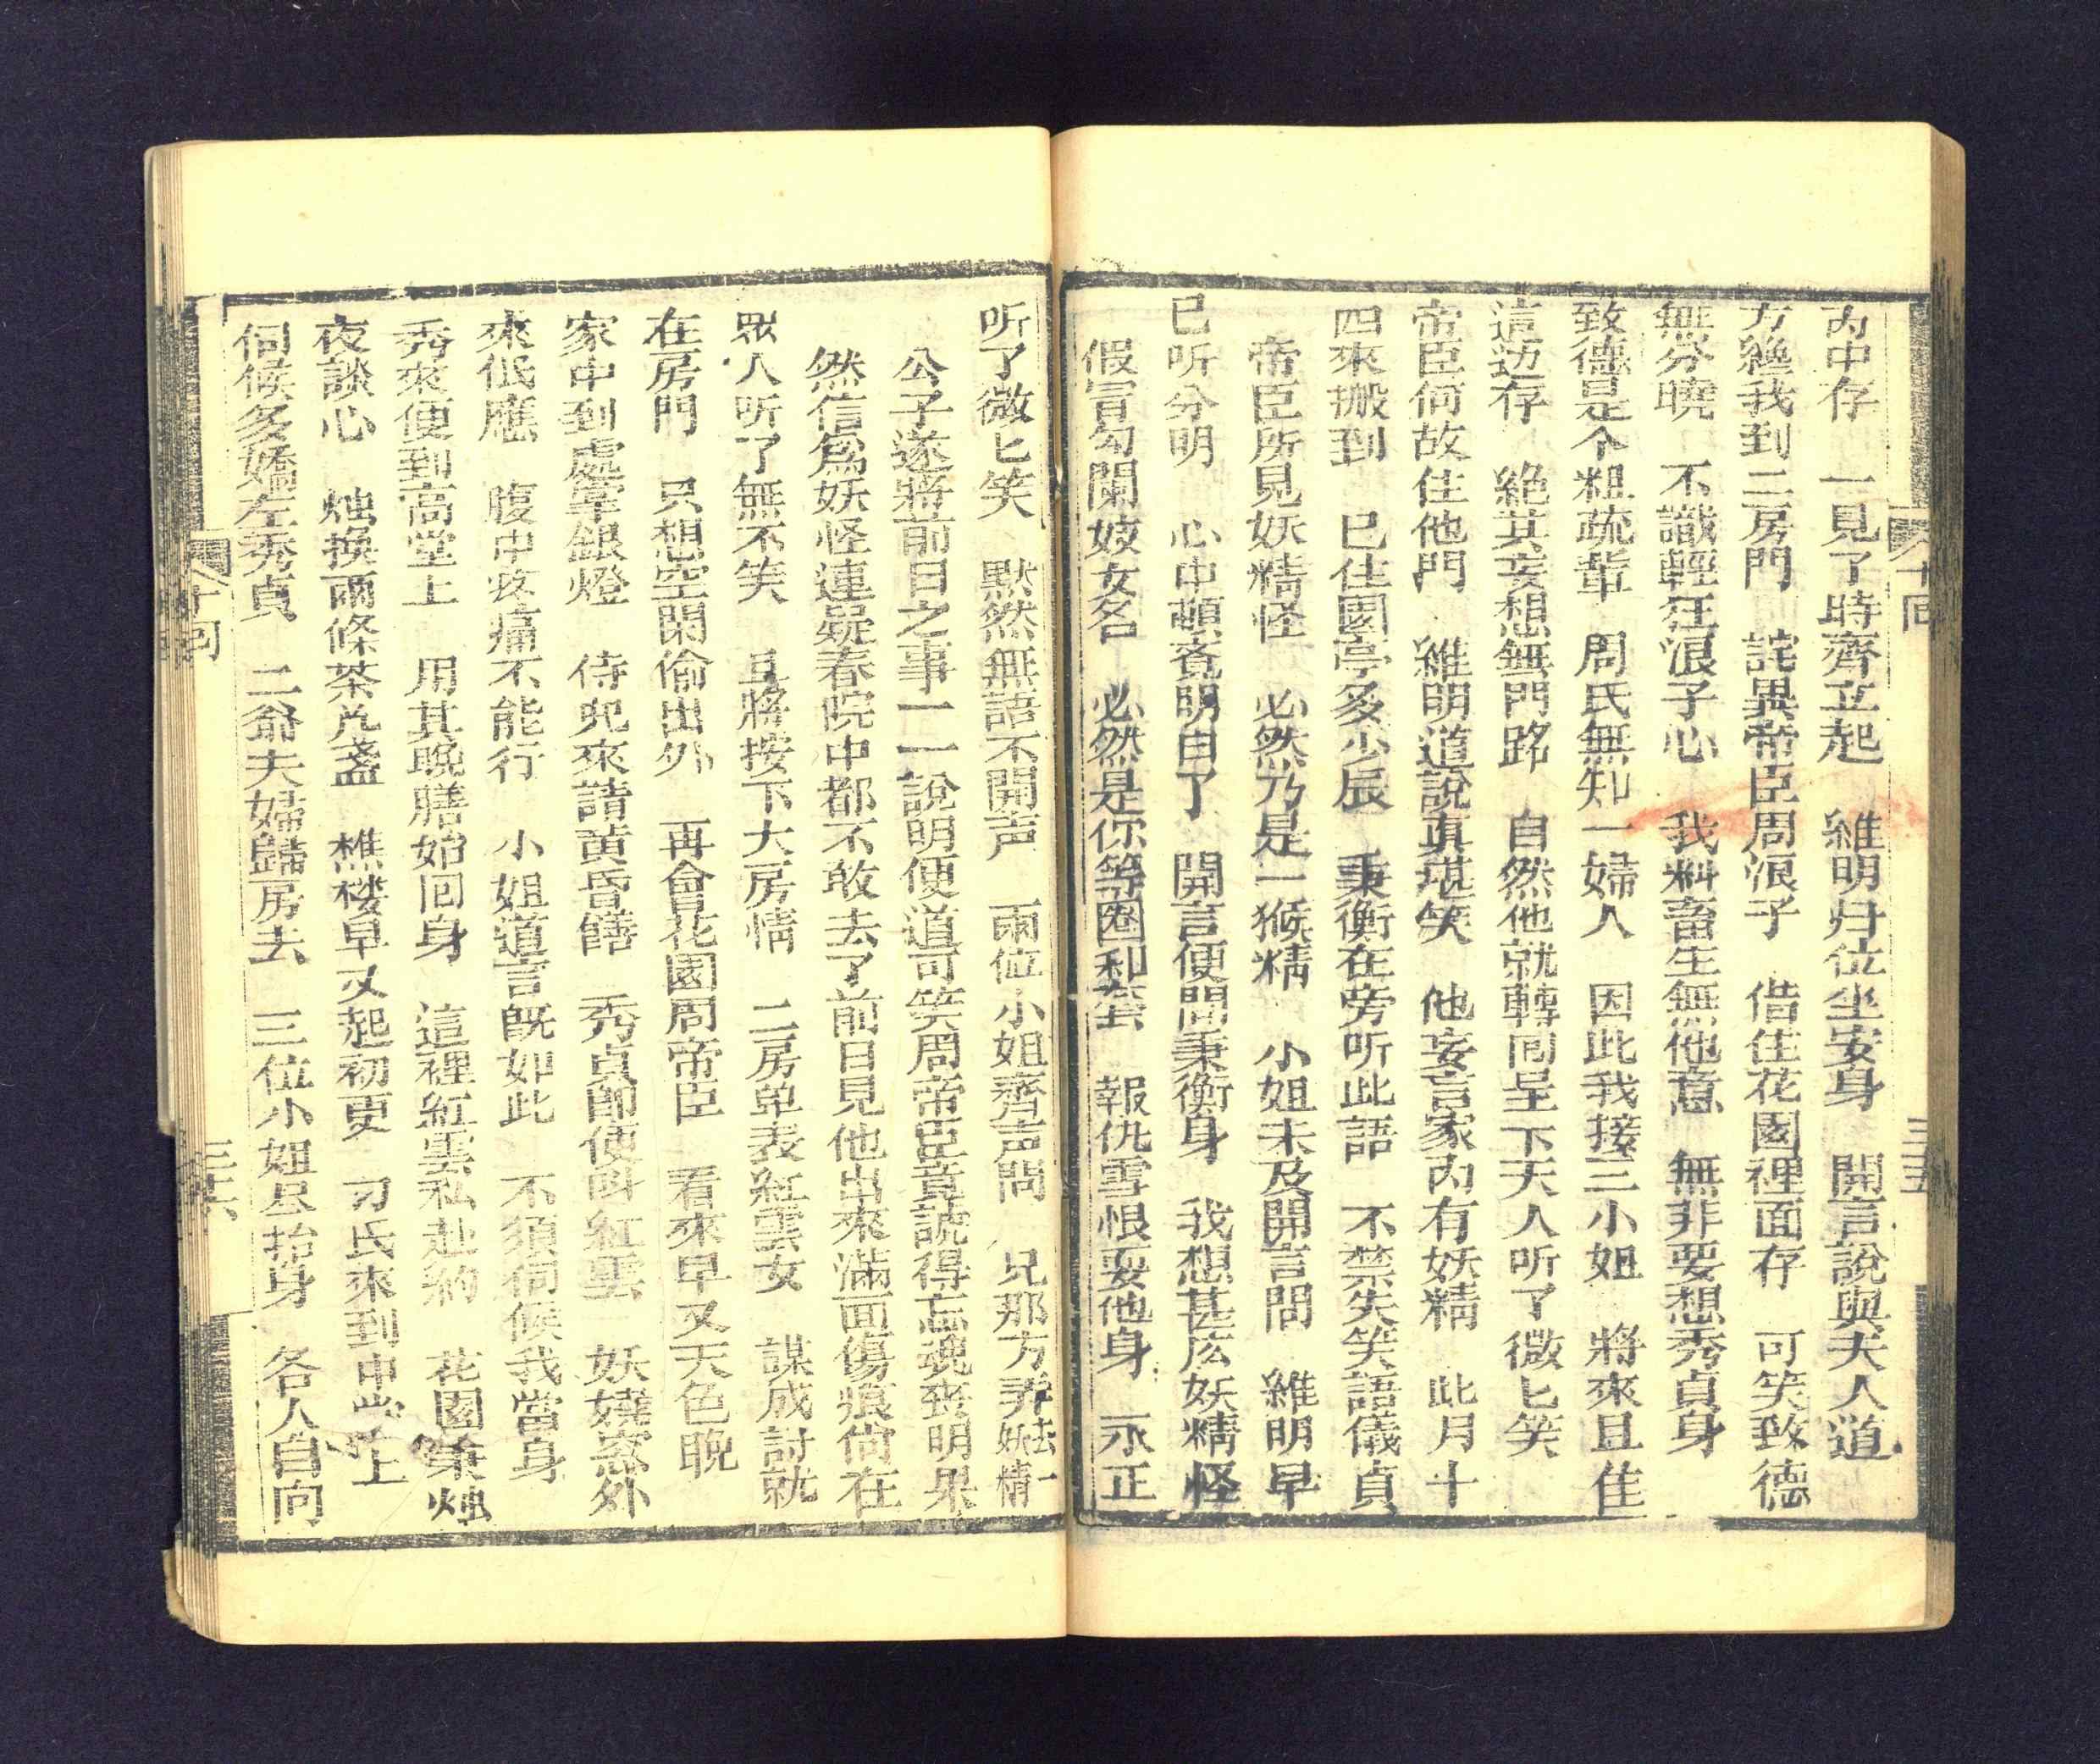 內中存　一見了時齊立起　維明归位坐安身　開言說與夫人道
方纔我到二房門　詫異帝臣周浪子　借住花園裡面存　可笑致德
無分曉　不識輕狂浪子心　我料畜生無他意　無非要想秀貞身
致德是个粗疏輩　周氏無知一婦人　因此我接三小姐　將來且住
這边存　絶其妄想無門路　自然他就轉回呈下夫人听了微匕笑
帝臣何故住他門　維明道說真堪笑　他妄言家內有妖精　此月十
四來搬到　已住園亭多少辰　秉衡在旁听此語　不禁失笑語儀貞
帝臣所見妖精怪　必然乃是一猴精　小姐未及開言問　維明早
已听分明　心中頓覺明白了　開言便問秉衡身　我想甚庅妖精怪
假冒勾闌妓女名　必然是你等圈和套　報仇雪恨耍他身　永正
听了微匕笑　默然無語不開声　兩位小姐齊声問　兄那方弄法一妖精
公子遂將前日之事一一說明便道可笑周帝臣竟說得忘魂喪明果
然信爲妖怪連疑春院中都不敢去了前日見他出來滿面傷痕尙在
眾人听了無不笑　且將按下大房情　二房单表紅雲女　謀成討就
在房門　只想空閑偷出外　再會花園周帝臣　看來早又天色晚
家中到處掌銀燈　侍兒來請黄昏饍　秀貞即便叫紅雲　妖嬈窓外
來低應　腹中疼痛不能行　小姐道言既如此　不須伺候我當身
秀來便到高堂上　用其晚膳始回身　這裡紅雲私赴約　花園秉烛
夜談心　烛換兩條茶几盞　樵楼早又起初更　刁氏來到中堂上
伺候多嬌左秀貞　二爺夫婦歸房去　三位小姐尽抬身　各人自向
十回
三五
十回
三六